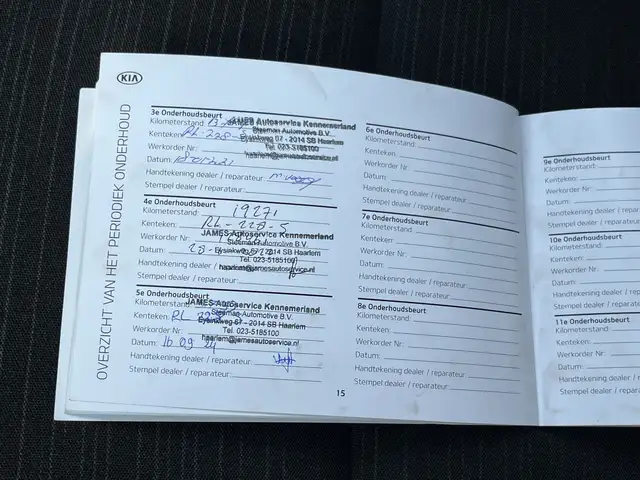 KIA
OVERZICHT VAN HET PERIODIEK ONDERHOUD
3e Onderhoudsbeurt
Kilometerstand: JAMES Autoservice Kennemerland
Steeman Automotive B.V.
Kenteken: RL-228-S Eysinkweg 67 - 2014 SB Haarlem
Werkorder Nr: Tel. 023-5185100
haarlem@jamesautoservice.nl
Datum:
Handtekening dealer / reparateur:
Stempel dealer / reparateur:
4e Onderhoudsbeurt
Kilometerstand: 19271
Kenteken: RL-228-S
JAMES Autoservice Kennemerland
Werkorder Nr: Steeman Automotive B.V.
Datum: 28- Eysinkweg 67 - 2014 SB Haarlem
Tel. 023-5185100
Handtekening dealer / reparateur: haarlem@jamesautoservice.nl
Stempel dealer / reparateur:
5e Onderhoudsbeurt
Kilometerstand: JAMES Autoservice Kennemerland
Steeman Automotive B.V.
Kenteken: RL 228 Eysinkweg 67 - 2014 SB Haarlem
Werkorder Nr: Tel. 023-5185100
haarlem@jamesautoservice.nl
Datum: 16 09 24
Handtekening dealer / reparateur:
Stempel dealer / reparateur:
6e Onderhoudsbeurt
Kilometerstand:
Kenteken:
Werkorder Nr:
Datum:
Handtekening dealer / reparateur:
Stempel dealer / reparateur:
7e Onderhoudsbeurt
Kilometerstand:
Kenteken:
Werkorder Nr:
Datum:
Handtekening dealer / reparateur:
Stempel dealer / reparateur:
8e Onderhoudsbeurt
Kilometerstand:
Kenteken:
Werkorder Nr:
Datum:
Handtekening dealer / reparateur:
Stempel dealer / reparateur:
15
9e Onderhoudsbeurt
Kilometerstand:
Kenteken:
Werkorder Nr:
Datum:
Handtekening dealer
Stempel dealer
10e Onderhoudsbeurt
Kilometerstand:
Kenteken:
Werkorder Nr:
Datum:
Handtekening dealer
Stempel dealer
11e Onderhoudsbeurt
Kilometerstand:
Kenteken:
Werkorder Nr:
Datum:
Handtekening dealer
Stempel dealer